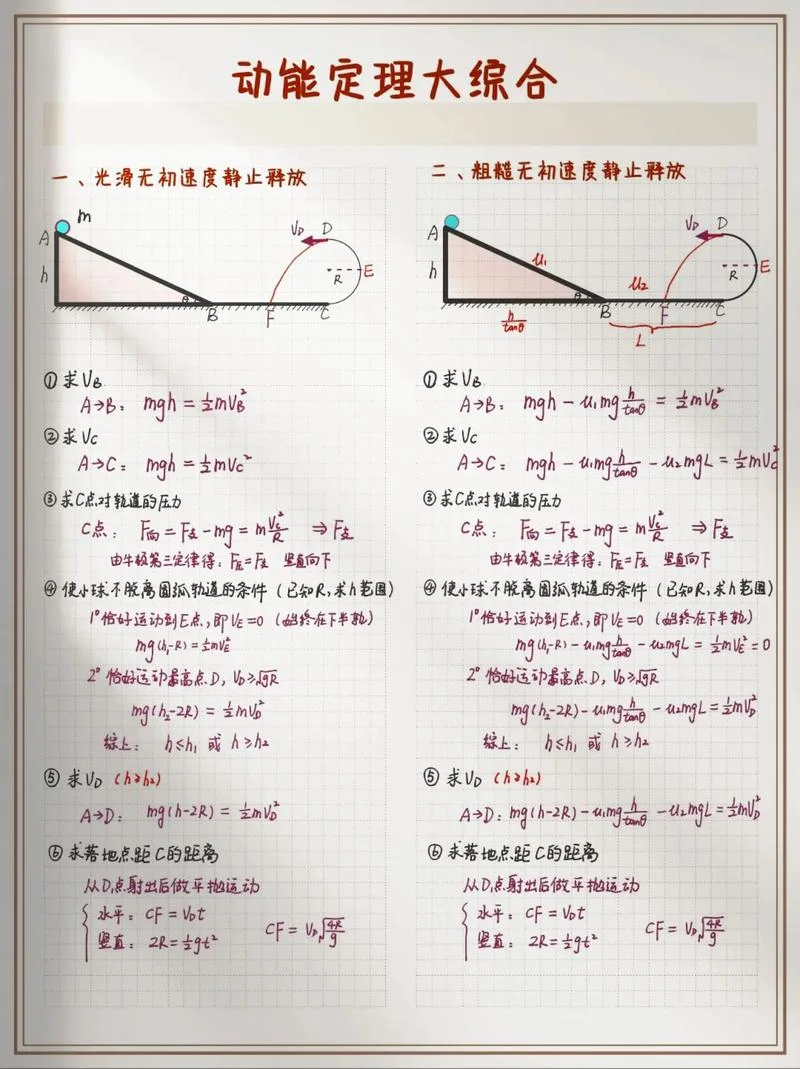 动能定理大综合
一、光滑无初速度静止释放
m
A
h
θ
B
F
C
V_D
D
R
E
① 求V_B
A→B: mgh = ½mV_B²
② 求V_C
A→C: mgh = ½mV_C²
③ 求C点对轨道的压力
C点: F向 = F支 - mg = m V_C²/R ⇒ F支
由牛顿第三定律得: F压 = F支 竖直向下
④ 使小球不脱离圆弧轨道的条件 (已知R, 求h范围)
1° 恰好运动到E点, 即V_E=0 (始终在下半轨)
mg(h₁-R) = ½mV_E²
2° 恰好运动最高点D, V_D≥√gR
mg(h₂-2R) = ½mV_D²
综上: h≤h₁ 或 h≥h₂
⑤ 求V_D (h≥h₂)
A→D: mg(h-2R) = ½mV_D²
⑥ 求落地点距C的距离
从D点射出后做平抛运动
水平: CF = V_D t
竖直: 2R = ½gt²
CF = V_D √(4R/g)
二、粗糙无初速度静止释放
A
h
u₁
θ
B
u₂
F
C
V_D
D
R
E
h/tanθ
L
① 求V_B
A→B: mgh - u₁mg h/tanθ = ½mV_B²
② 求V_C
A→C: mgh - u₁mg h/tanθ - u₂mgL = ½mV_C²
③ 求C点对轨道的压力
C点: F向 = F支 - mg = m V_C²/R ⇒ F支
由牛顿第三定律得: F压 = F支 竖直向下
④ 使小球不脱离圆弧轨道的条件 (已知R, 求h范围)
1° 恰好运动到E点, 即V_E=0 (始终在下半轨)
mg(h₁-R) - u₁mg h/tanθ - u₂mgL = ½mV_E² = 0
2° 恰好运动最高点D, V_D≥√gR
mg(h₂-2R) - u₁mg h/tanθ - u₂mgL = ½mV_D²
综上: h≤h₁ 或 h≥h₂
⑤ 求V_D (h≥h₂)
A→D: mg(h-2R) - u₁mg h/tanθ - u₂mgL = ½mV_D²
⑥ 求落地点距C的距离
从D点射出后做平抛运动
水平: CF = V_D t
竖直: 2R = ½gt²
CF = V_D √(4R/g)